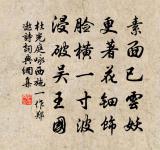 素面已雲妖
更著花鈿飾
臉橫一寸波
浸破吳王國
杜光庭詠西施一作鄭
遨詩詞典網集